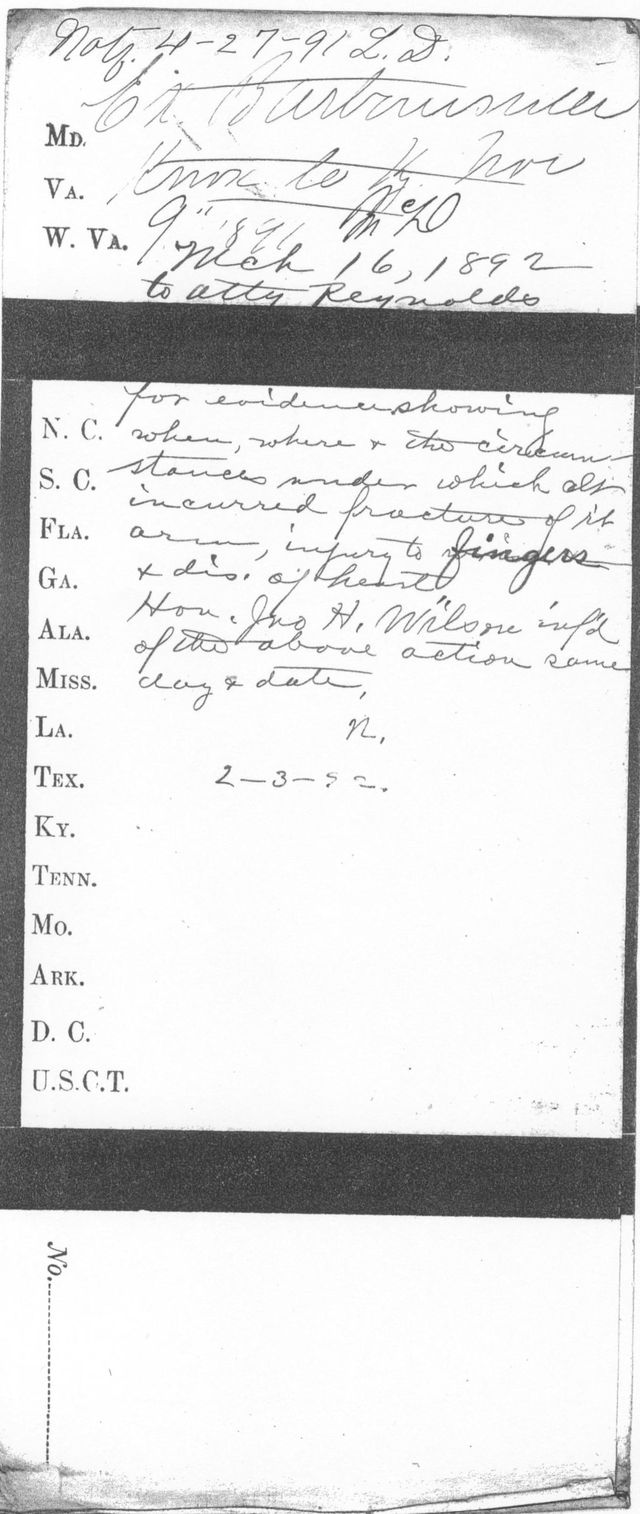 Notf. 4-27-91 L.D.
Ex Barboursville
MD.
Knox Co Ky Nov
VA.
9" 1891 McD
W. VA.
Mch 16, 1892
to atty Reynolds
for evidence showing
N. C. when, where & the circum-
S. C. stances under which clt
incurred fracture of rt
FLA. arm, injury to fingers
GA. & dis. of heart
Hon. Jno H. Wilson inf'd
ALA. of the above action same
MISS. day & date,
LA. N.
TEX. 2-3-92.
KY.
TENN.
MO.
ARK.
D. C.
U.S.C.T.
No.